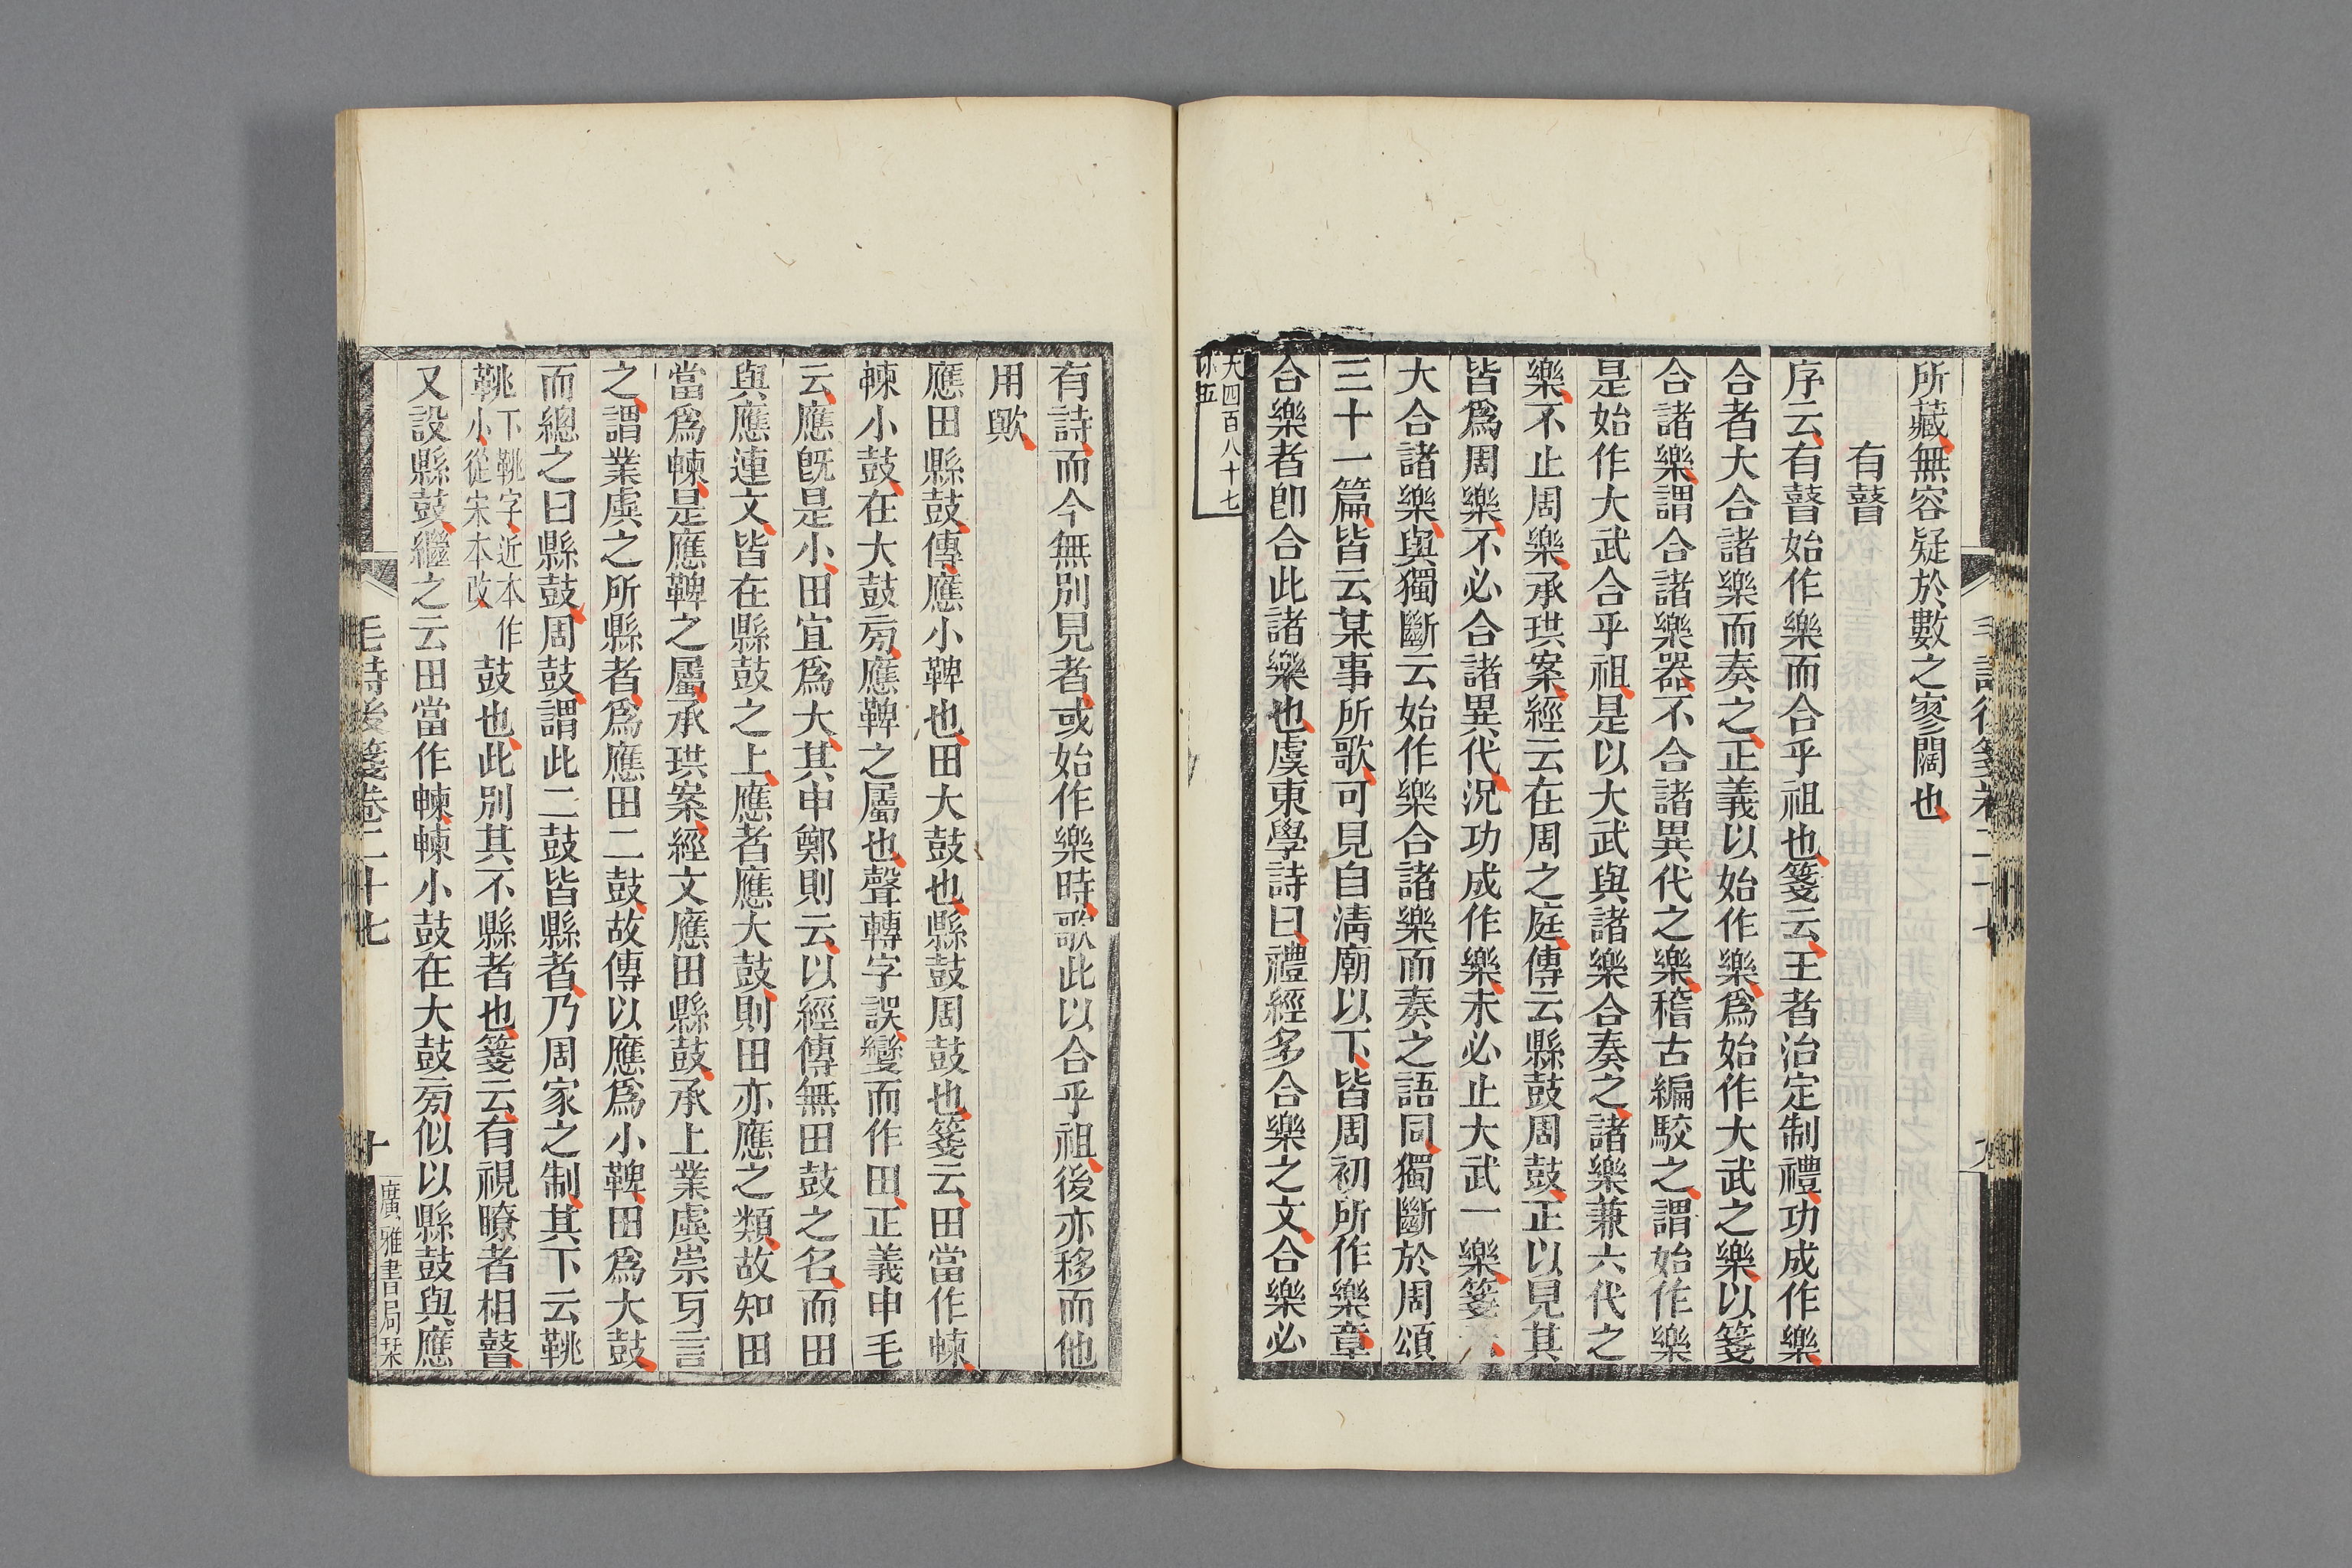 所藏無容疑於數之寥闊也
有瞽
序云有瞽始作樂而合乎祖也箋云王者治定制禮功成作樂
合者大合諸樂而奏之正義以始作樂爲始作大武之樂以箋
合諸樂謂合諸樂器不合諸異代之樂稽古編駮之謂始作樂
是始作大武合乎祖是以大武與諸樂合奏之諸樂兼六代之
樂不止周樂承珙案經云在周之庭傳云縣鼓周鼓正以見其
皆爲周樂不必合諸異代況功成作樂未必止大武一樂箋
大合諸樂與獨斷云始作樂合諸樂而奏之語同獨斷於周頌
三十一篇皆云某事所歌可見自清廟以下皆周初所作樂章
合樂者卽合此諸樂也虞東學詩曰禮經多合樂之文合樂必
大四百八十七
小五
有詩而今無別見者或始作樂時歌此以合乎祖後亦移而他
用歟
應田縣鼓傳應小鞞也田大鼓也縣鼓周鼓也箋云田當作朄
朄小鼓在大鼓旁應鞞之屬也聲轉字誤變而作田正義申毛
云應旣是小田宜爲大其申鄭則云以經傳無田鼓之名而田
與應連文皆在縣鼓之上應者應大鼓則田亦應之類故知田
當爲朄是應鞞之屬承珙案經文應田縣鼓承上業虡崇牙言
之謂業虡之所縣者爲應田二鼓故傳以應爲小鞞田爲大鼓
而總之曰縣鼓周鼓謂此二鼓皆縣者乃周家之制其下云鞉
鞉下鞉字近本作小從宋本改鼓也此別其不縣者也箋云有視瞭者相瞽
又設縣鼓繼之云田當作朄朄小鼓在大鼓旁似以縣鼓與應
毛詩後箋卷二十七
十
廣雅書局栞